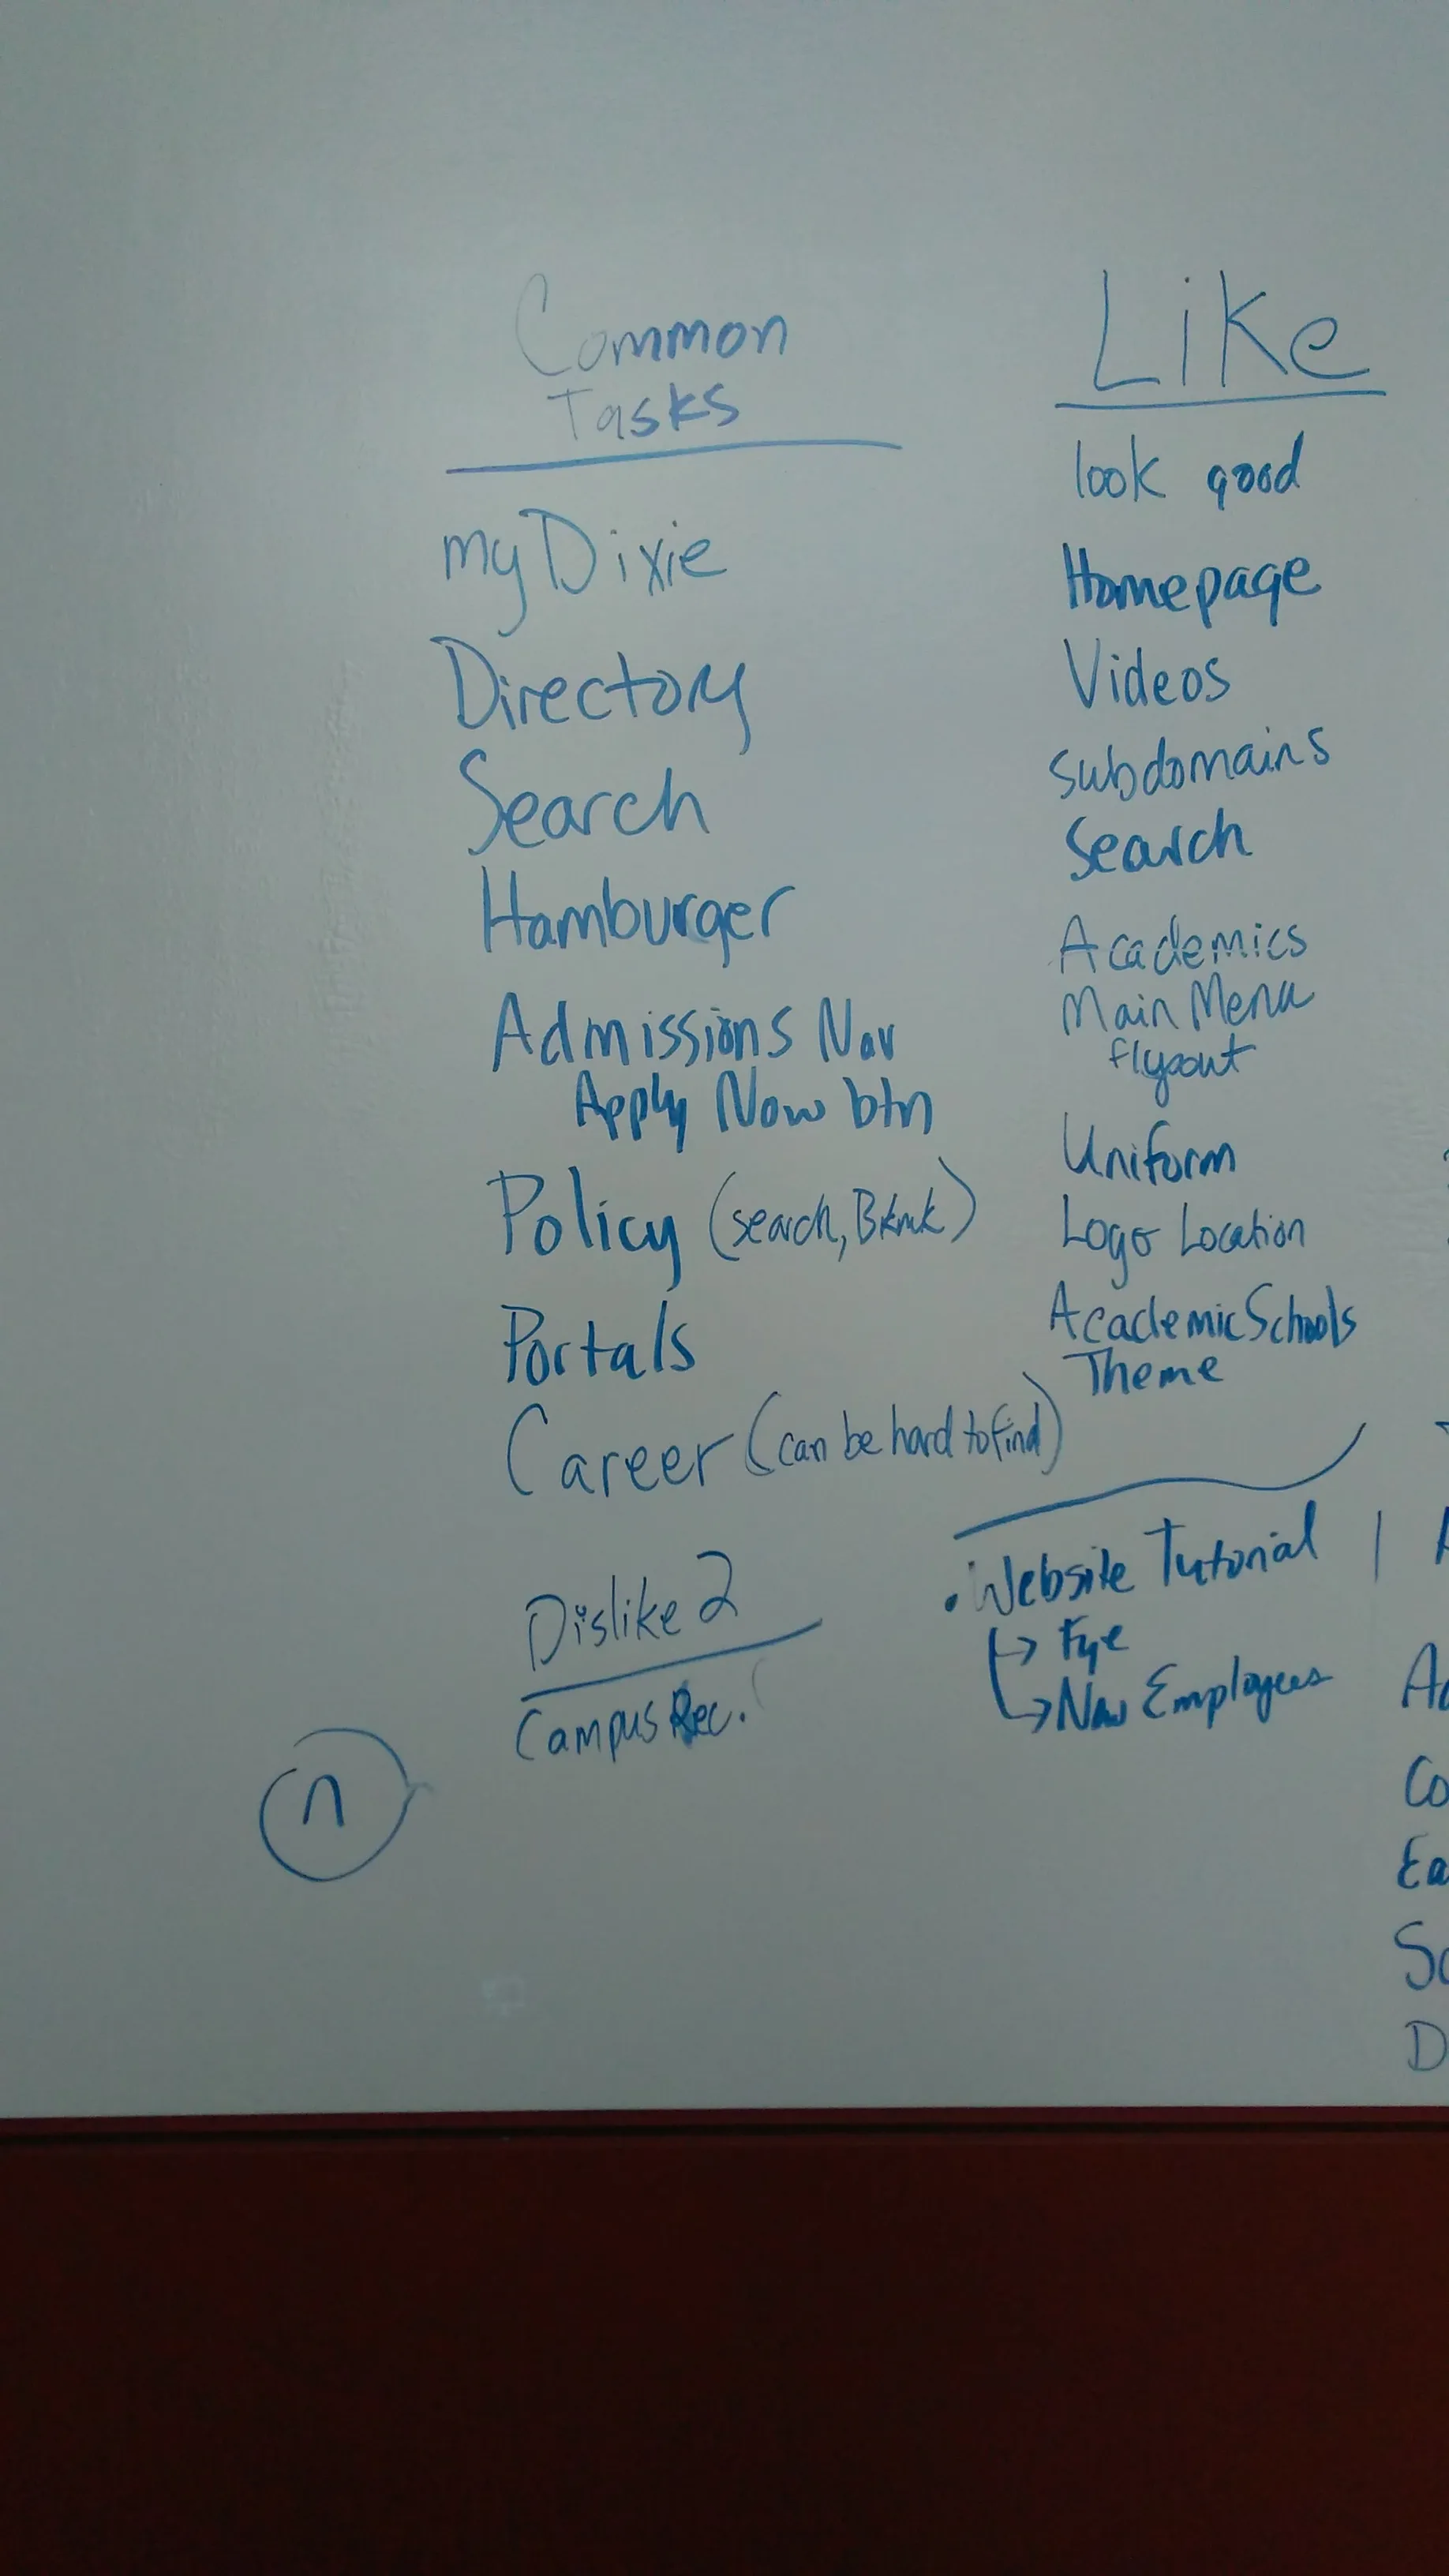 Common
Tasks
myDixie
Directory
Search
Hamburger
Admissions Nav
Apply Now btn
Policy (search, Bkmk)
Portals
Career (can be hard to find)
Dislike 2
Campus Rec.
n
Like
look good
Homepage
Videos
Subdomains
Search
Academics
Main Menu
flyout
Uniform
Logo Location
Academic Schools
Theme
• Website Tutorial |
→ Fye
→ New Employees
A
Ac
Co
Ea
So
D